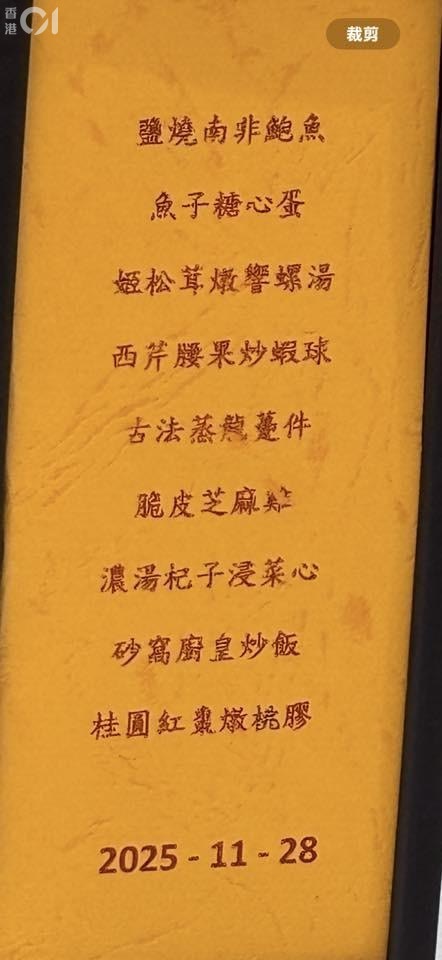 香港01
裁剪
鹽燒南非鮑魚
魚子糖心蛋
姬松茸燉響螺湯
西芹腰果炒蝦球
古法蒸龍躉件
脆皮芝麻雞
濃湯杞子浸菜心
砂窩廚皇炒飯
桂圓紅棗燉桃膠
2025 - 11 - 28